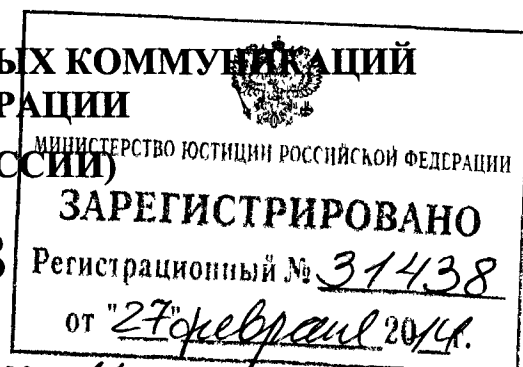 ЫХ КОММУНИКАЦИЙ
РАЦИИ
МИНИСТЕРСТВО ЮСТИЦИИ РОССИЙСКОЙ ФЕДЕРАЦИИ
ССИИ)
ЗАРЕГИСТРИРОВАНО
Регистрационный № 31438
от "27" февраля 2014.